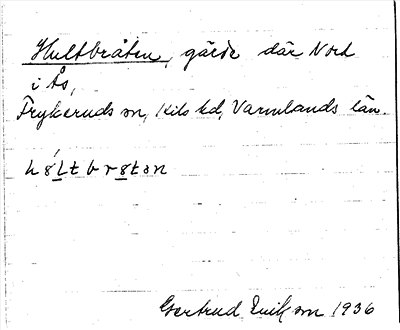 Hultbråten, gärde där Nord
i Ås,
Frykeruds sn, Kils hd, Värmlands län.
Gertrud Eriksson 1936